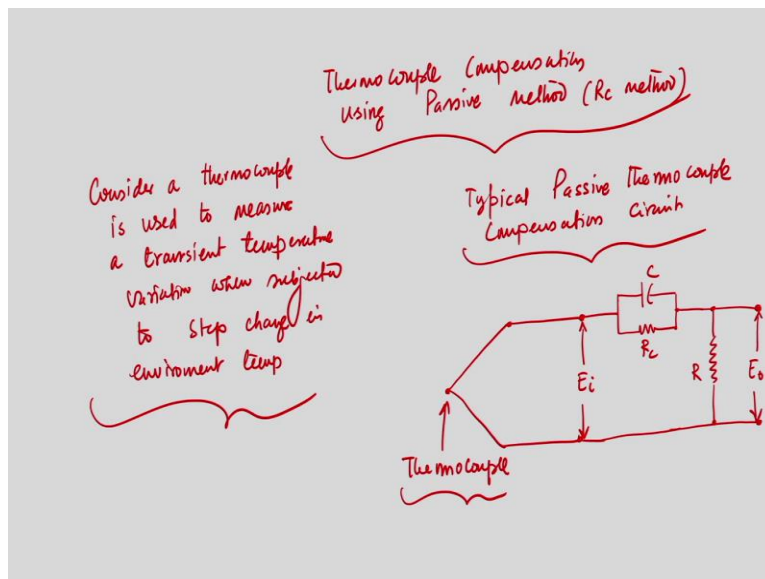 Thermocouple Compensation
using Passive method (Rc method)
Consider a thermocouple
is used to measure
a transient temperature
variation when subjected
to step change in
enviroment temp
Typical Passive Thermocouple
Compensation Circuit
C
Rc
Ei
R
Eo
Thermocouple